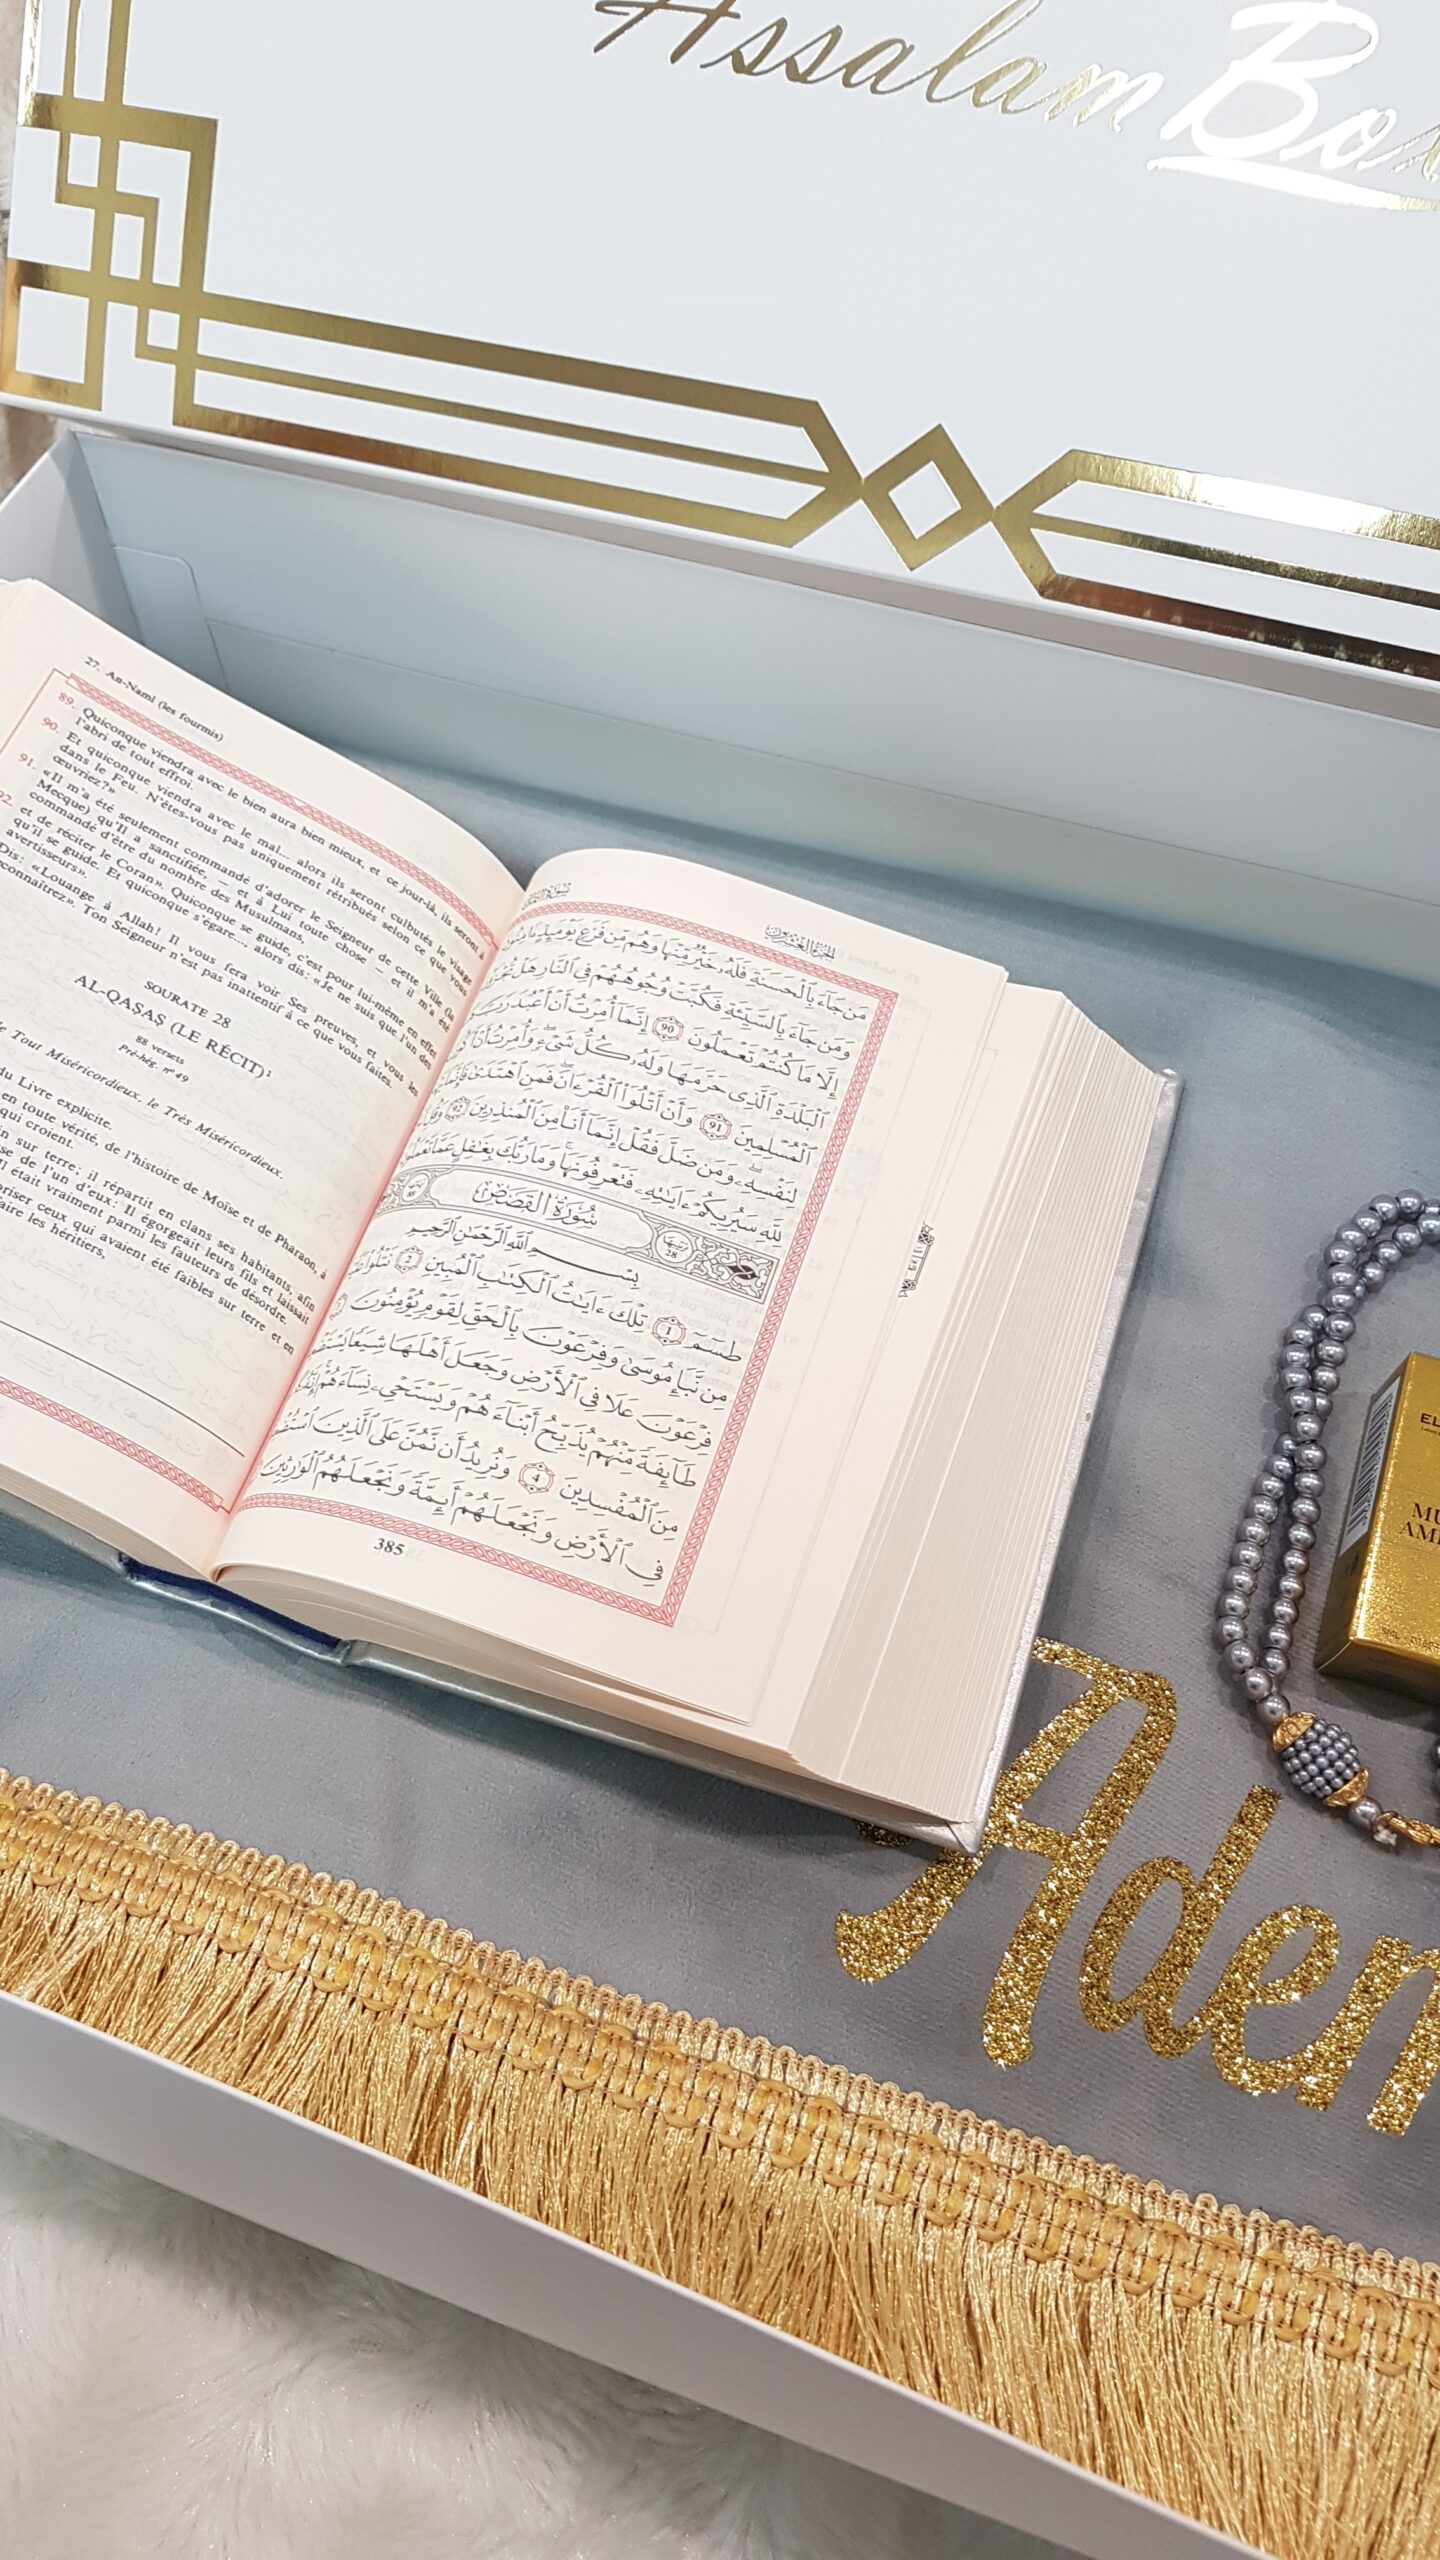 Assalam Box
27. An-Naml (les fourmis)
89. Quiconque viendra avec le bien aura bien mieux, et ce jour-là, ils seront à
l'abri de tout effroi.
90. Et quiconque viendra avec le mal... alors ils seront culbutés le visage
dans le Feu. N'êtes-vous pas uniquement rétribués selon ce que vous
œuvriez?»
91. «Il m'a été seulement commandé d'adorer le Seigneur de cette Ville (la
Mecque) qu'Il a sanctifiée, — et à Lui toute chose — et il m'a été
commandé d'être du nombre des Musulmans,
92. et de réciter le Coran». Quiconque se guide, c'est pour lui-même en effet
qu'il se guide. Et quiconque s'égare..., alors dis: «Je ne suis que l'un des
avertisseurs».
Dis: «Louange à Allah! Il vous fera voir Ses preuves, et vous les
connaîtrez». Ton Seigneur n'est pas inattentif à ce que vous faites.
SOURATE 28
AL-QAṢAṢ (LE RÉCIT)¹
88 versets
pré-hég. n° 49
le Tout Miséricordieux, le Très Miséricordieux.
du Livre explicite.
en toute vérité, de l'histoire de Moïse et de Pharaon, à
qui croient.
sur terre; il répartit en clans ses habitants, afin
de l'un d'eux: Il égorgeait leurs fils et laissait
Il était vraiment parmi les fauteurs de désordre.
ceux qui avaient été faibles sur terre et en
les héritiers,
الجزء العشرون
مَن جَآءَ بِٱلْحَسَنَةِ فَلَهُۥ خَيْرٌ مِّنْهَا وَهُم مِّن فَزَعٍ يَوْمَئِذٍ ءَامِنُونَ
وَمَن جَآءَ بِٱلسَّيِّئَةِ فَكُبَّتْ وُجُوهُهُمْ فِى ٱلنَّارِ هَلْ
إِلَّا مَا كُنتُمْ تَعْمَلُونَ 90 إِنَّمَآ أُمِرْتُ أَنْ أَعْبُدَ رَبَّ
ٱلْبَلْدَةِ ٱلَّذِى حَرَّمَهَا وَلَهُۥ كُلُّ شَىْءٍ وَأُمِرْتُ أَنْ
ٱلْمُسْلِمِينَ 91 وَأَنْ أَتْلُوَا۟ ٱلْقُرْءَانَ فَمَنِ ٱهْتَدَىٰ فَإِنَّمَا
لِنَفْسِهِۦ وَمَن ضَلَّ فَقُلْ إِنَّمَآ أَنَا۠ مِنَ ٱلْمُنذِرِينَ 92
لِلَّهِ سَيُرِيكُمْ ءَايَٰتِهِۦ فَتَعْرِفُونَهَا وَمَا رَبُّكَ بِغَٰفِلٍ عَمَّا تَعْمَلُونَ
سُورَةُ القَصَصِ
28
88
بِسْمِ ٱللَّهِ ٱلرَّحْمَٰنِ ٱلرَّحِيمِ
طسٓمٓ 1 تِلْكَ ءَايَٰتُ ٱلْكِتَٰبِ ٱلْمُبِينِ 2 نَتْلُوا۟
مِن نَّبَإِ مُوسَىٰ وَفِرْعَوْنَ بِٱلْحَقِّ لِقَوْمٍ يُؤْمِنُونَ
فِرْعَوْنَ عَلَا فِى ٱلْأَرْضِ وَجَعَلَ أَهْلَهَا شِيَعًا
طَآئِفَةً مِّنْهُمْ يُذَبِّحُ أَبْنَآءَهُمْ وَيَسْتَحْىِۦ نِسَآءَهُمْ
مِنَ ٱلْمُفْسِدِينَ 4 وَنُرِيدُ أَن نَّمُنَّ عَلَى ٱلَّذِينَ
فِى ٱلْأَرْضِ وَنَجْعَلَهُمْ أَئِمَّةً وَنَجْعَلَهُمُ ٱلْوَٰرِثِينَ
385